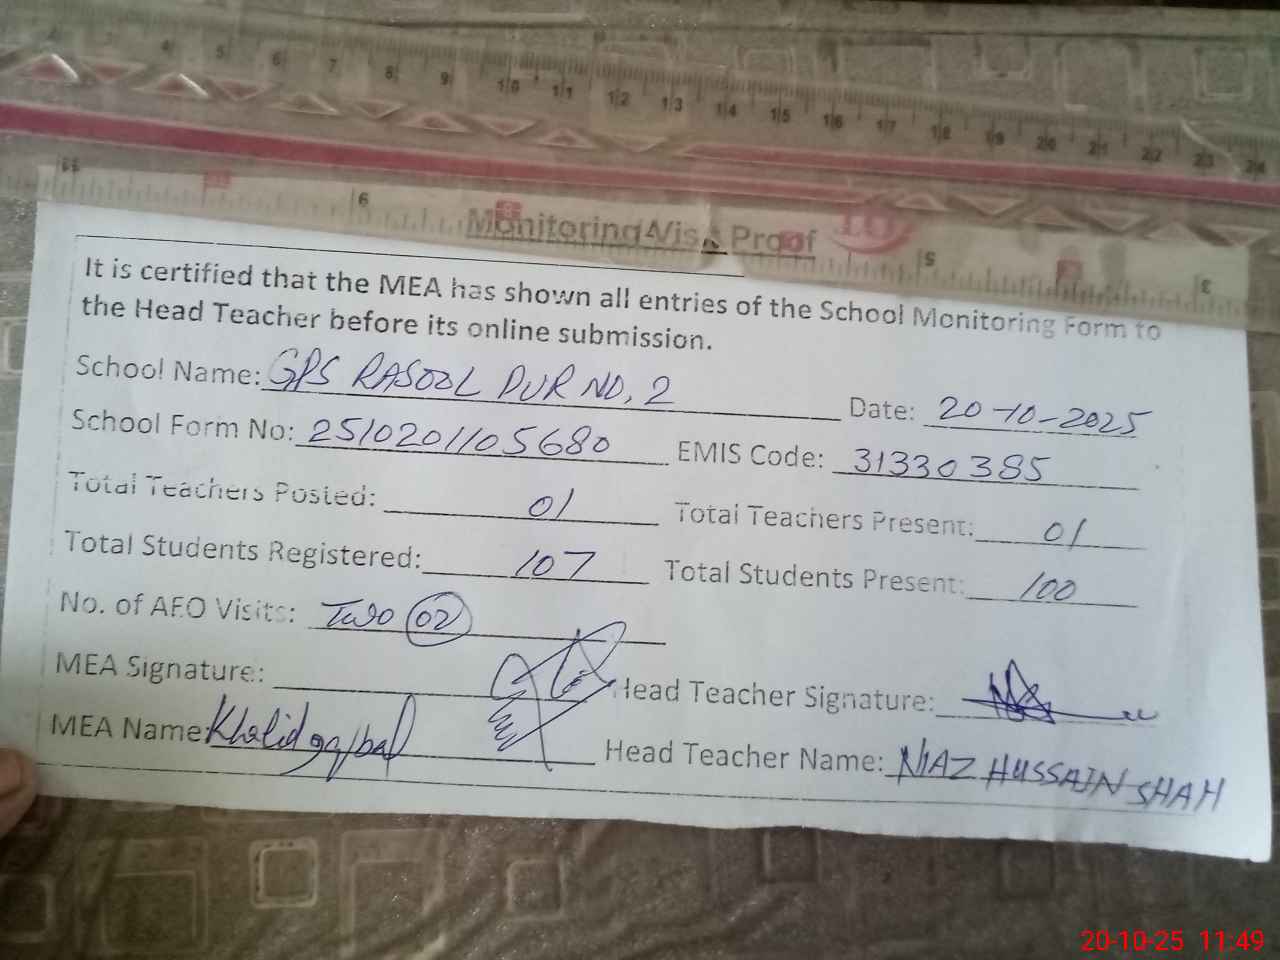 4 5 6 7 8 9 10 11 12 13 14 15 16 17 18 19 20 21 22 23 24
11 10 9 8 7 5 4 3
Monitoring Visit Proof
It is certified that the MEA has shown all entries of the School Monitoring Form to
the Head Teacher before its online submission.
School Name: GPS RASOOL PUR NO, 2 Date: 20-10-2025
School Form No: 2510201105680 EMIS Code: 31330385
Total Teachers Posted: 01 Total Teachers Present: 01
Total Students Registered: 107 Total Students Present: 100
No. of AEO Visits: Two 02
MEA Signature: Head Teacher Signature:
MEA Name: Khalid iqbal Head Teacher Name: NIAZ HUSSAIN SHAH
20-10-25 11:49